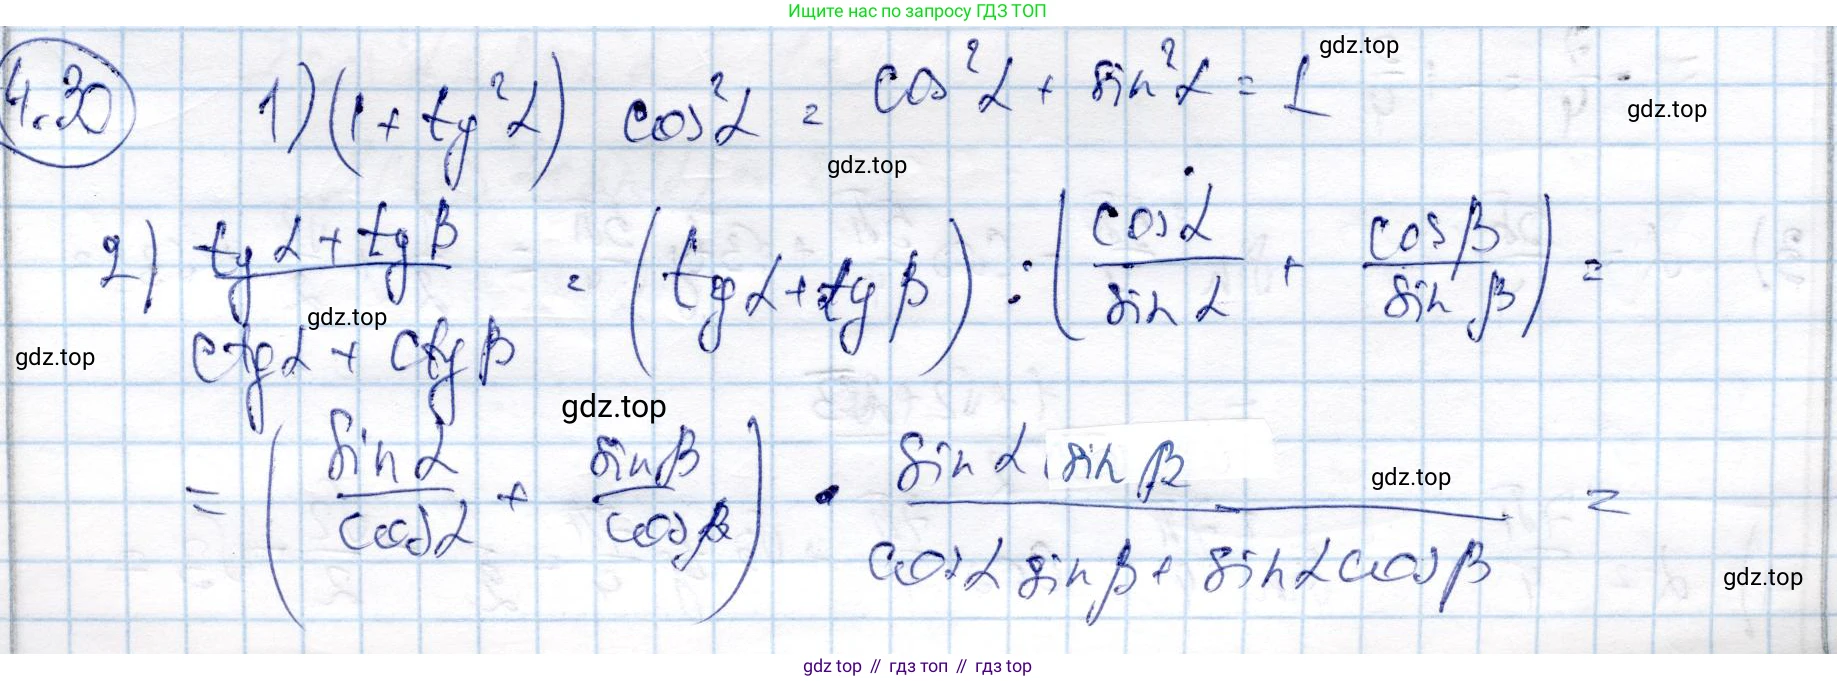 Ищите нас по запросу ГДЗ ТОП
4.30 1) (1 + tg²α) cos²α = cos²α + sin²α = 1
gdz.top
gdz.top
gdz.top
2) (tgα + tgβ)/(ctgα + ctgβ) = (tgα + tgβ) : (cosα/sinα + cosβ/sinβ) =
gdz.top
gdz.top
gdz.top
= (sinα/cosα + sinβ/cosβ) · (sinα · sinβ)/(cosα sinβ + sinα cosβ) =
gdz.top
gdz.top
gdz.top // гдз топ // гдз top